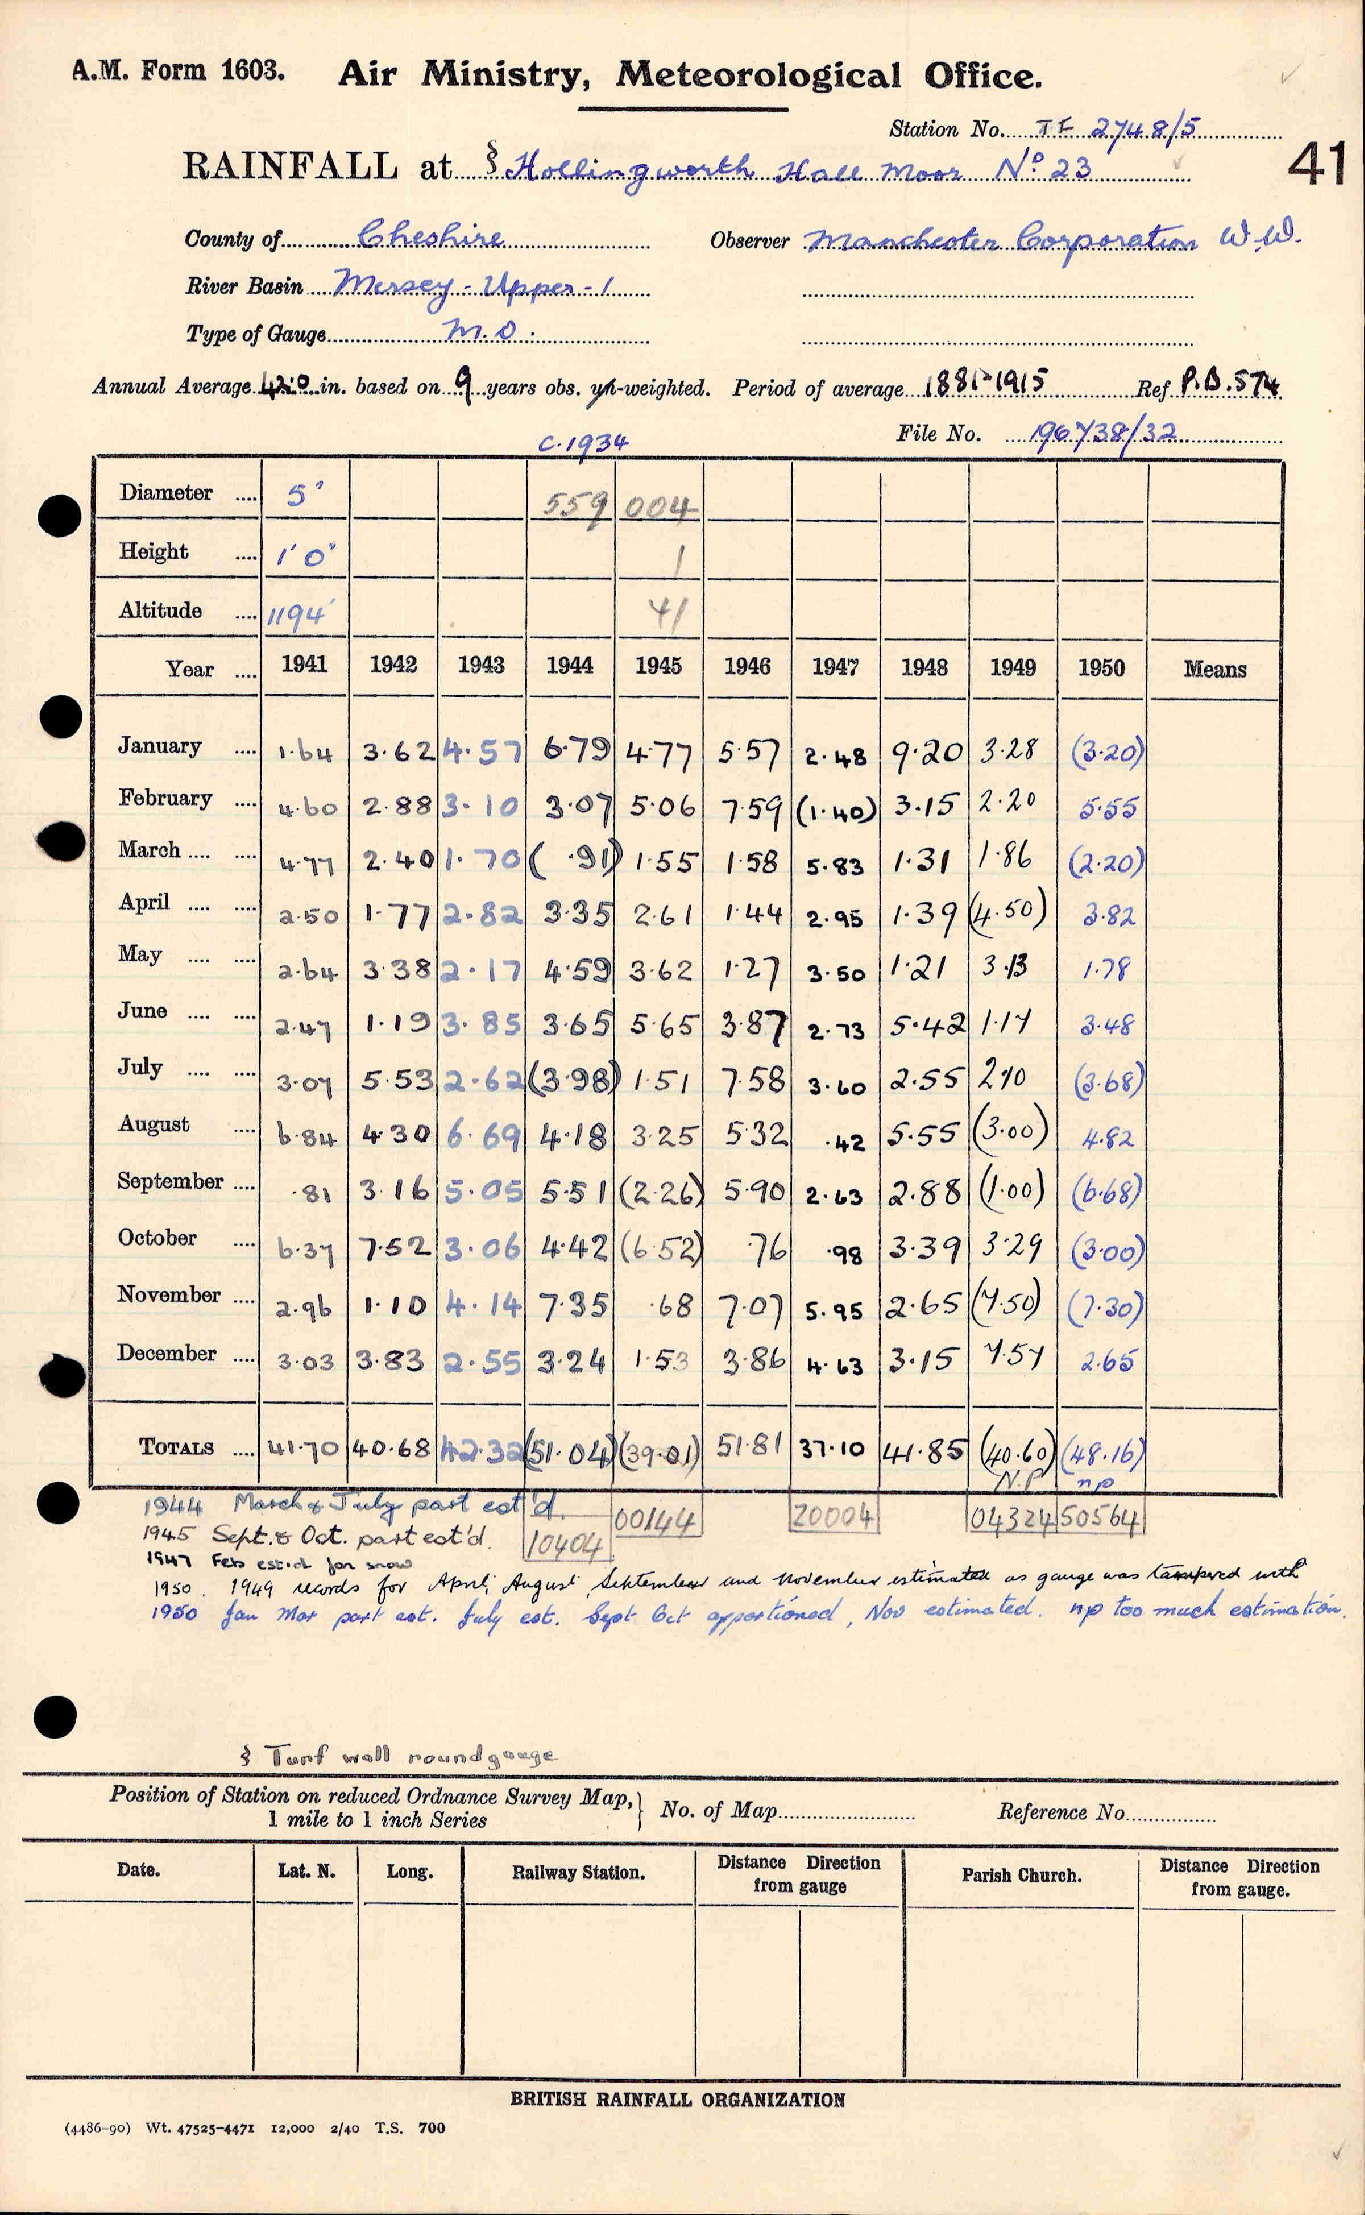 A.M. Form 1603. Air Ministry, Meteorological Office.
Station No. 2748/5
41
RAINFALL at § Hollingworth Hall Moor No. 23
County of Cheshire Observer Manchester Corporation W.W.
River Basin Mersey - Upper - 1
Type of Gauge M.O.
Annual Average 42.0 in. based on 9 years obs. un-weighted. Period of average 1881-1915 Ref P.B.574
File No. 196738/32
c.1934
Diameter .... 5" 559 004
Height .... 1'0" 1
Altitude .... 1194' 41
Year .... 1941 1942 1943 1944 1945 1946 1947 1948 1949 1950 Means
January .... 1.64 3.62 4.57 6.79 4.77 5.57 2.48 9.20 3.28 (3.20)
February .... 4.60 2.88 3.10 3.07 5.06 7.59 (1.40) 3.15 2.20 5.55
March .... .... 4.77 2.40 1.70 ( .91) 1.55 1.58 5.83 1.31 1.86 (2.20)
April .... .... 2.50 1.77 2.82 3.35 2.61 1.44 2.95 1.39 (4.50) 3.82
May .... .... 2.64 3.38 2.17 4.59 3.62 1.27 3.50 1.21 3.13 1.78
June .... .... 2.47 1.19 3.85 3.65 5.65 3.87 2.73 5.42 1.17 3.48
July .... .... 3.07 5.53 2.62 (3.98) 1.51 7.58 3.60 2.55 2.10 (3.68)
August .... 6.84 4.30 6.69 4.18 3.25 5.32 .42 5.55 (3.00) 4.82
September .... .81 3.16 5.05 5.51 (2.26) 5.90 2.63 2.88 (1.00) (6.68)
October .... 6.37 7.52 3.06 4.42 (6.52) .76 .98 3.39 3.29 (3.00)
November .... 2.96 1.10 4.14 7.35 .68 7.07 5.95 2.65 (7.50) (7.30)
December .... 3.03 3.83 2.55 3.24 1.53 3.86 4.63 3.15 7.57 2.65
TOTALS .... 41.70 40.68 42.32 (51.04) (39.01) 51.81 37.10 41.85 (40.60) (48.16)
N.P np
1944 March & July part est'd.
10404 00144 20004 04324 50564
1945 Sept. & Oct. part est'd.
1947 Feb est'd for snow
1950. 1949 records for April, August, September and November estimated as gauge was tampered with
1950 Jan Mar part est. July est. Sept Oct apportioned, Nov estimated. np too much estimation.
§ Turf wall round gauge
Position of Station on reduced Ordnance Survey Map, 1 mile to 1 inch Series } No. of Map Reference No.
Date. Lat. N. Long. Railway Station. Distance Direction from gauge Parish Church. Distance Direction from gauge.
BRITISH RAINFALL ORGANIZATION
(4486-90) Wt. 47525-4471 12,000 2/40 T.S. 700